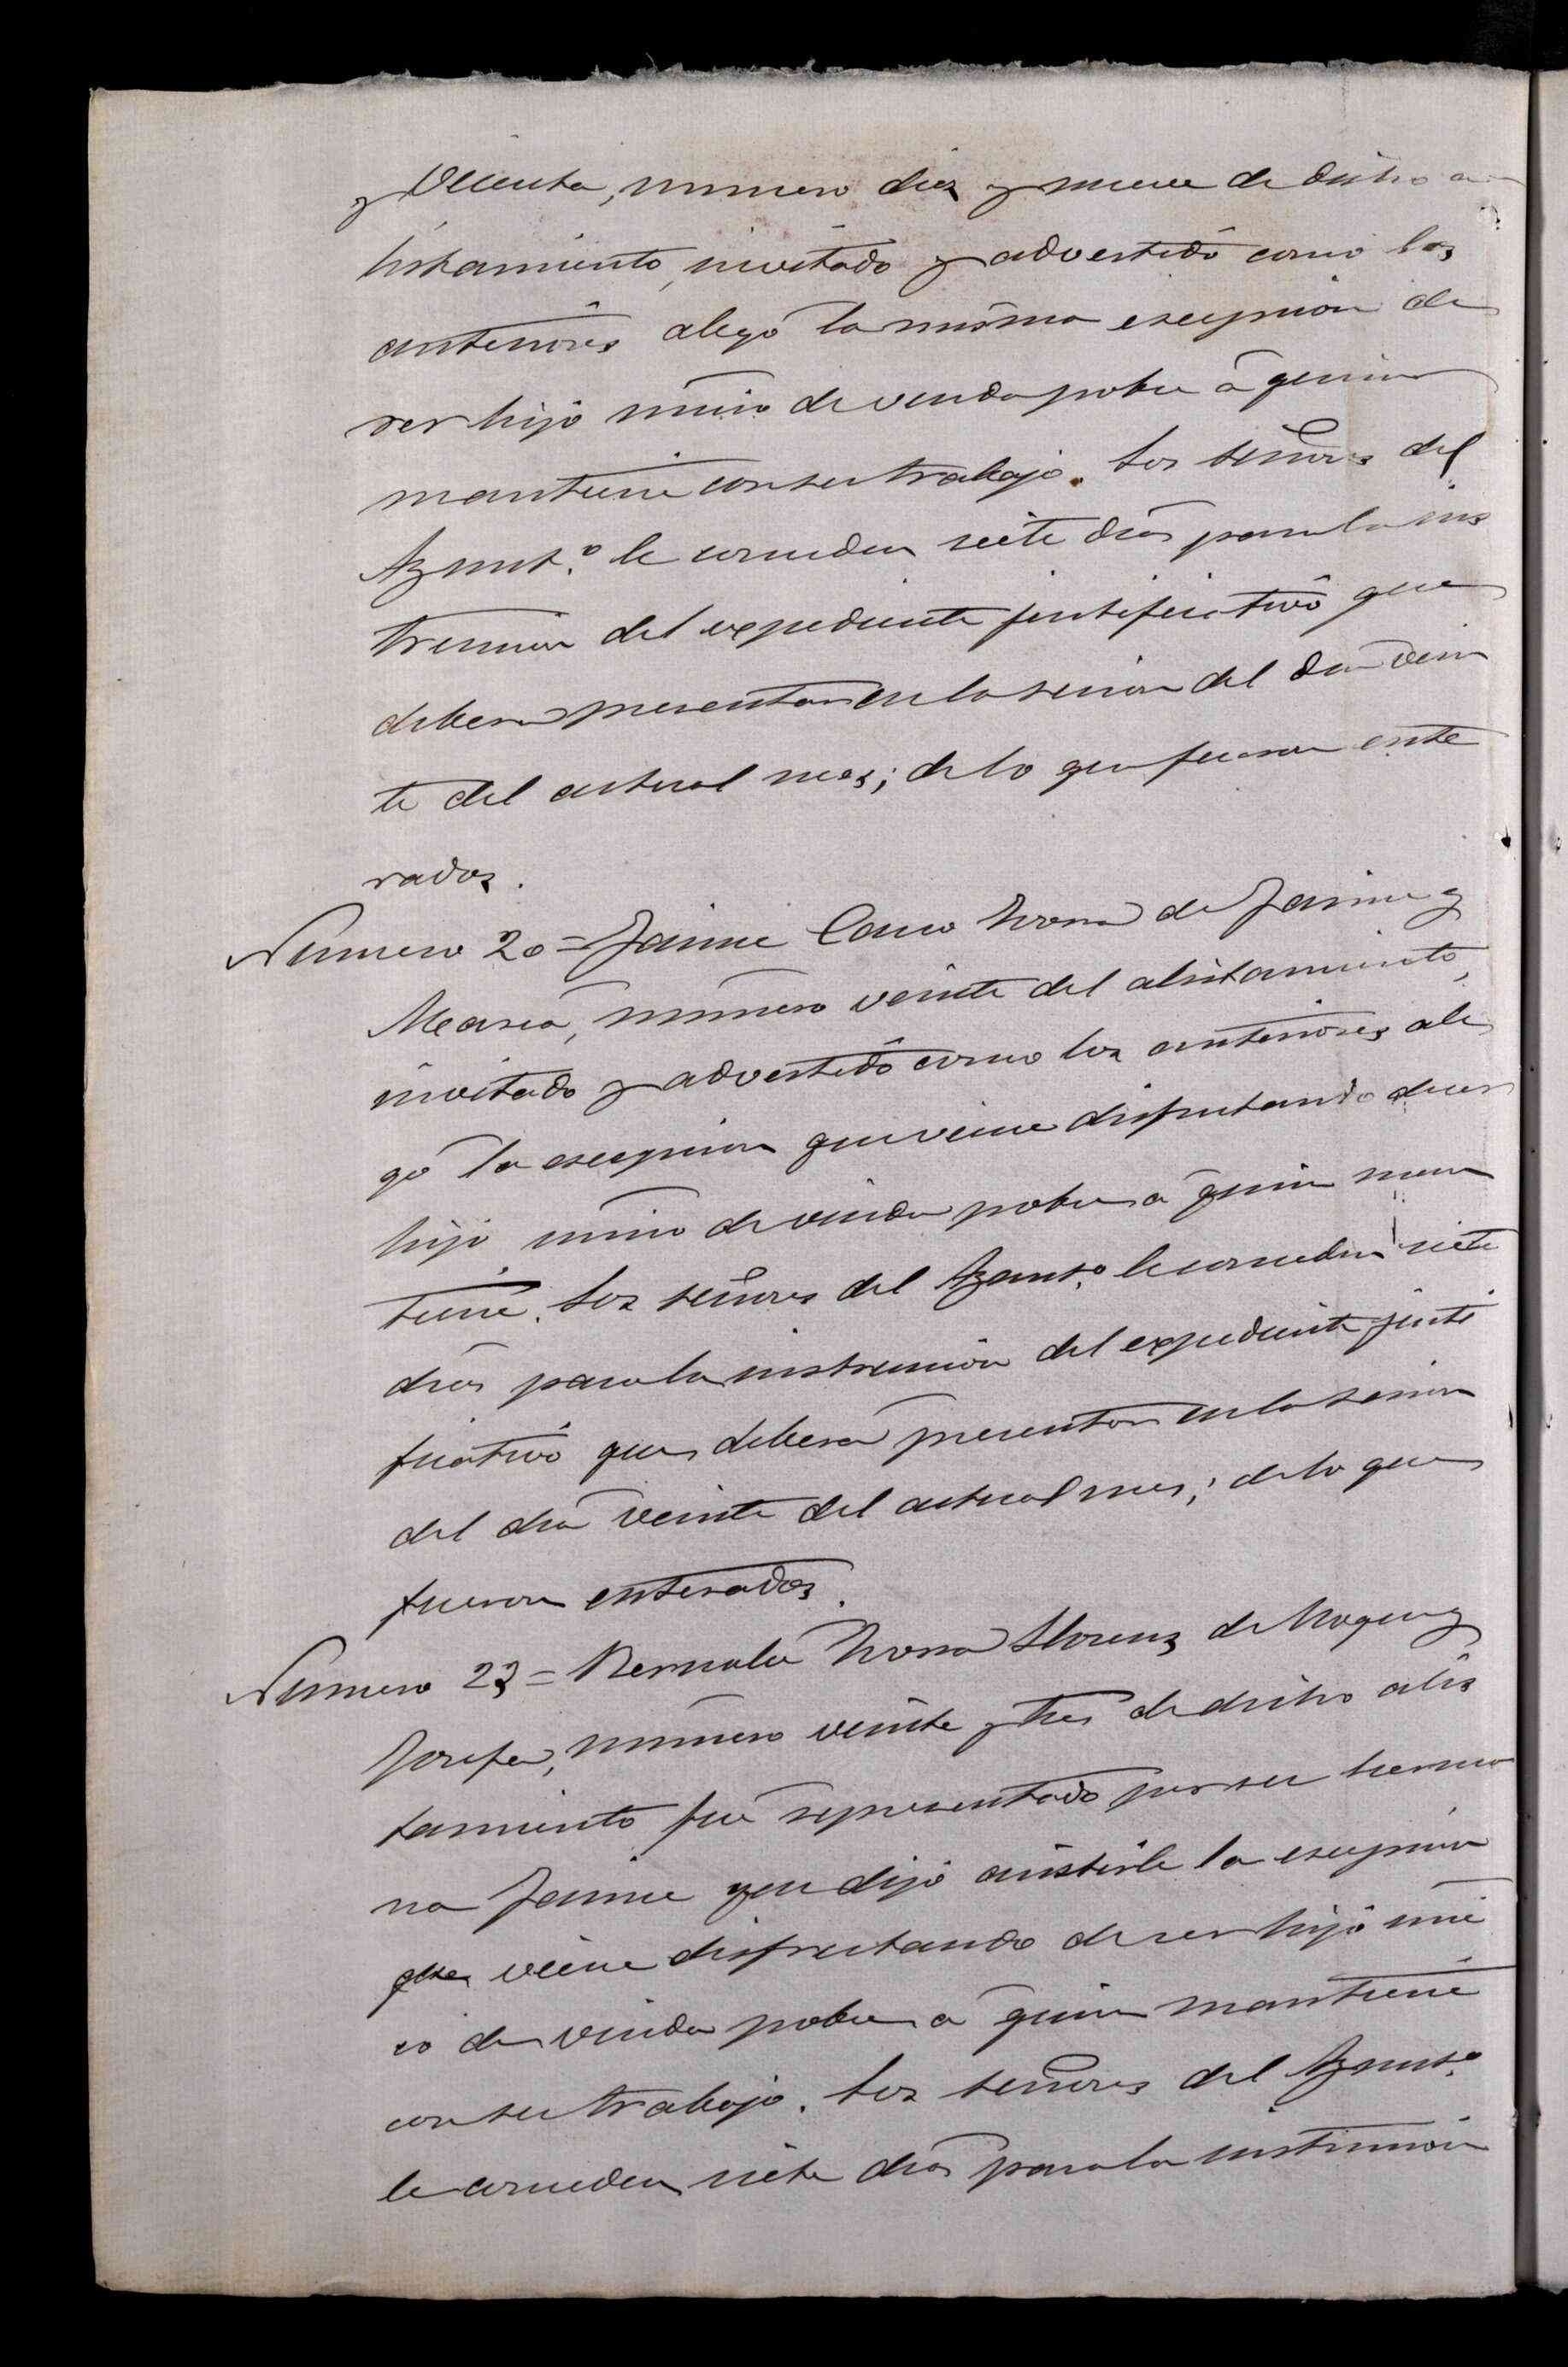 y Vicenta, numero diez y nueve de dicho a
listamiento, invitado y advertido como los
anteriores alegó la misma escepcion de
ser hijo único de viuda pobre á quien
mantiene con su trabajo. Los señores del
Ayunt.º le conceden siete dias para la ins
truccion del expediente justificativo que
deberá presentar en la sesion del dia vein
te del actual mes; de lo que fueron ente
rados.
Numero 20 = Jaime Cano de Jaime y
Maria, número veinte del alistamiento,
invitado y advertido como los anteriores ale
gó la escepcion que viene disfrutando de ser
hijo único de viuda pobre á quien man
tiene. Los señores del Ayunt.º le conceden siete
dias para la instruccion del expediente justi
ficativo que deberá presentar en la sesion
del dia veinte del actual mes; de lo que
fueron enterados.
Numero 23 = Llorens de Roque y
Josefa, número veinte y tres de dicho alis
tamiento fué representado por su herma
no Jaime que dijo asistirle la escepcion
que viene disfrutando de ser hijo úni
co de viuda pobre á quien mantiene
con su trabajo. Los señores del Ayunt.º
le conceden siete dias para la instruccion